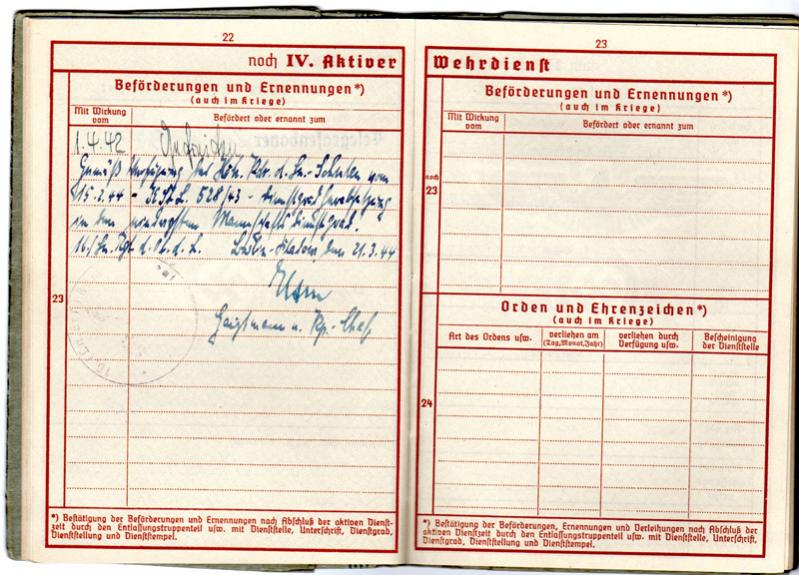 22
noch IV. Aktiver
Beförderungen und Ernennungen*)
(auch im Kriege)
Mit Wirkung vom
Befördert oder ernannt zum
1.4.42
Gemäß Verfügung des Höh. Kdr. d. Ln.-Schulen vom
15.3.44 - 528/43 - Dienstgradherabsetzung
in den niedrigsten Mannschaftsdienstgrad.
11./Ln. Rgt. d. Ob. d. L. den 21.3.44
Hauptmann u. Kp.-Chef
23
*) Bestätigung der Beförderungen und Ernennungen nach Abschluß der aktiven Dienst-
zeit durch den Entlassungstruppenteil usw. mit Dienststelle, Unterschrift, Dienstgrad,
Dienststellung und Dienststempel.
23
Wehrdienst
Beförderungen und Ernennungen*)
(auch im Kriege)
Mit Wirkung vom
Befördert oder ernannt zum
noch
23
Orden und Ehrenzeichen*)
(auch im Kriege)
Art des Ordens usw.
verliehen am (Tag, Monat, Jahr)
verliehen durch Verfügung usw.
Bescheinigung der Dienststelle
24
*) Bestätigung der Beförderungen, Ernennungen und Verleihungen nach Abschluß der
aktiven Dienstzeit durch den Entlassungstruppenteil usw. mit Dienststelle, Unterschrift,
Dienstgrad, Dienststellung und Dienststempel.